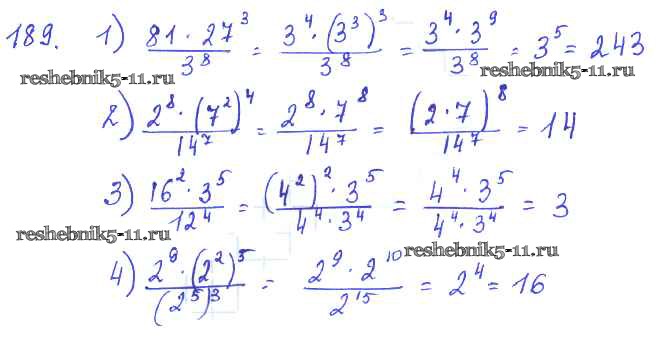 189. 1) (81 · 27³)/3⁸ = (3⁴ · (3³)³)/3⁸ = (3⁴ · 3⁹)/3⁸ = 3⁵ = 243
reshebnik5-11.ru reshebnik5-11.ru
2) (2⁸ · (7²)⁴)/14⁷ = (2⁸ · 7⁸)/14⁷ = (2 · 7)⁸/14⁷ = 14
3) (16² · 3⁵)/12⁴ = ((4²)² · 3⁵)/(4⁴ · 3⁴) = (4⁴ · 3⁵)/(4⁴ · 3⁴) = 3
reshebnik5-11.ru reshebnik5-11.ru
4) (2⁹ · (2²)⁵)/(2⁵)³ = (2⁹ · 2¹⁰)/2¹⁵ = 2⁴ = 16